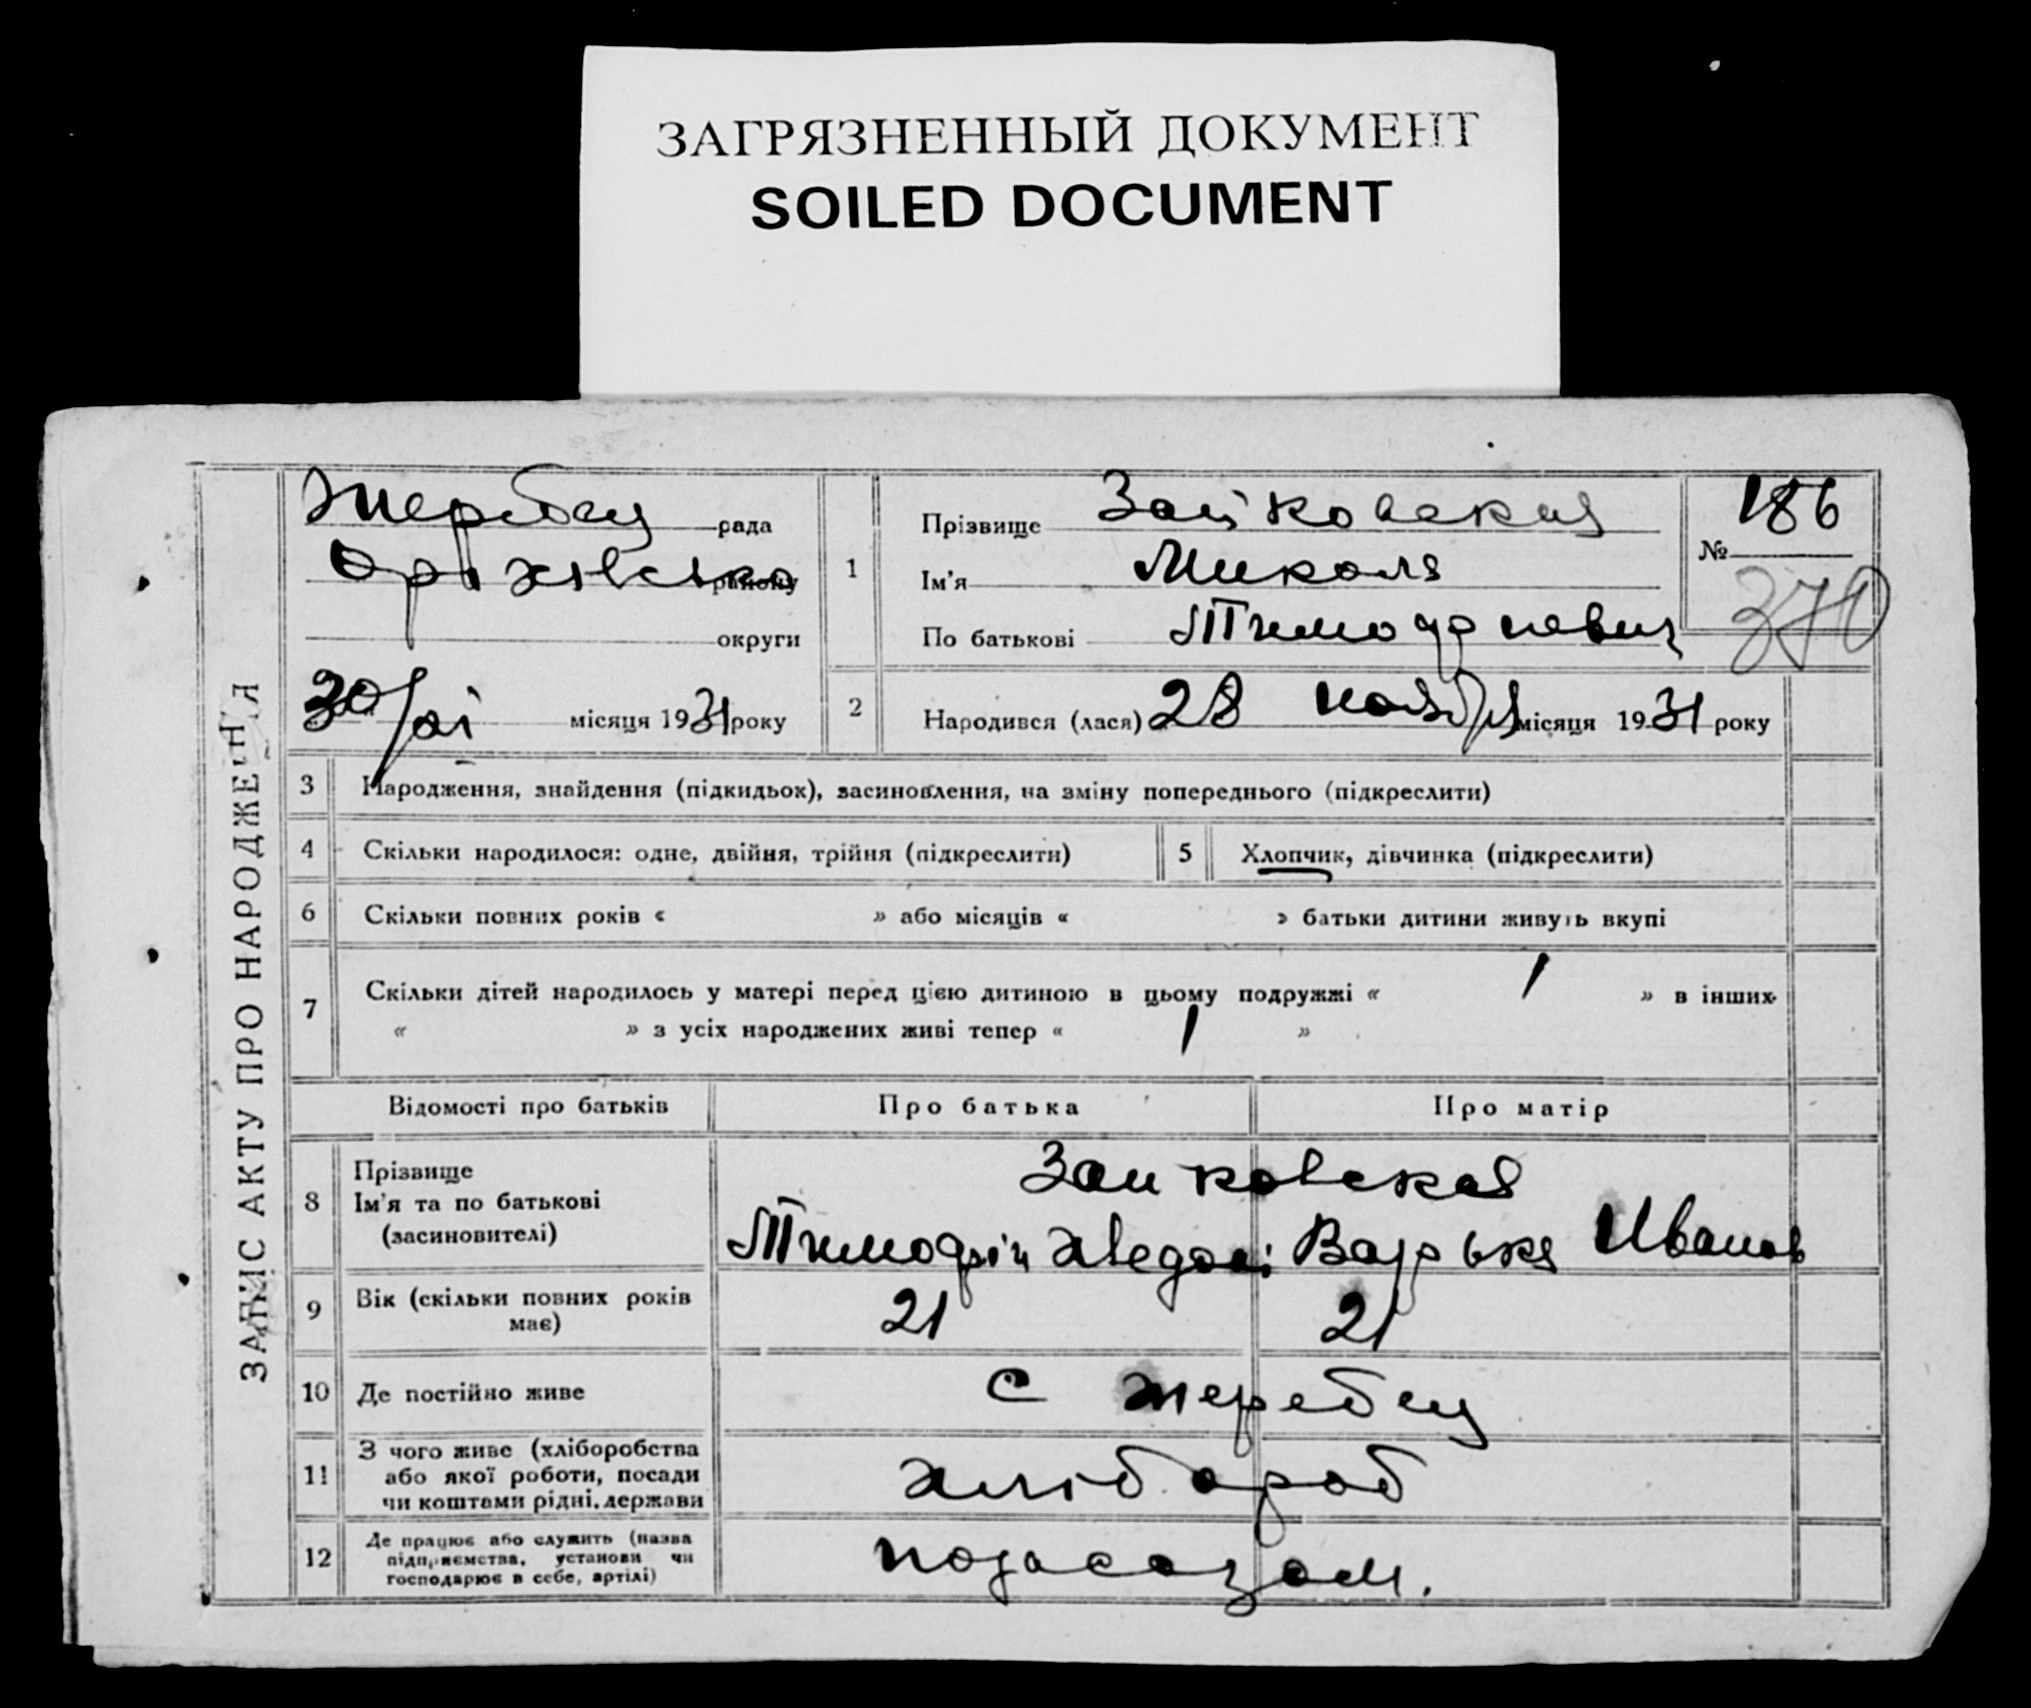 ЗАГРЯЗНЕННЫЙ ДОКУМЕНТ
SOILED DOCUMENT
ЗАПИС АКТУ ПРО НАРОДЖЕННЯ
Жеребец рада
Оріхівсько району
округи
30/хі місяця 1931 року
1
Прізвище Зайковская
Ім'я Миколя
По батькові Тимофопович
№ 186
370
2
Народився (лася) 28 ноября місяця 1931 року
3 Народження, знайдення (підкидьок), засиновлення, на зміну попереднього (підкреслити)
4 Скільки народилося: одне, двійня, трійня (підкреслити)
5 Хлопчик, дівчинка (підкреслити)
6 Скільки повних років « » або місяців « » батьки дитини живуть вкупі
7 Скільки дітей народилось у матері перед цією дитиною в цьому подружжі « 1 » в інших
« » з усіх народжених живі тепер « 1 »
Відомості про батьків Про батька Про матір
8 Прізвище
Ім'я та по батькові
(засиновителі)
Зайковская
Тимофій Хведос Варька Иванов
9 Вік (скільки повних років
має)
21 21
10 Де постійно живе с жеребец
11 З чого живе (хліборобства
або якої роботи, посади
чи коштами рідні, держави
хлібороб
12 Де працює або служить (назва
підприємства, установи чи
господарює в себе, артілі)